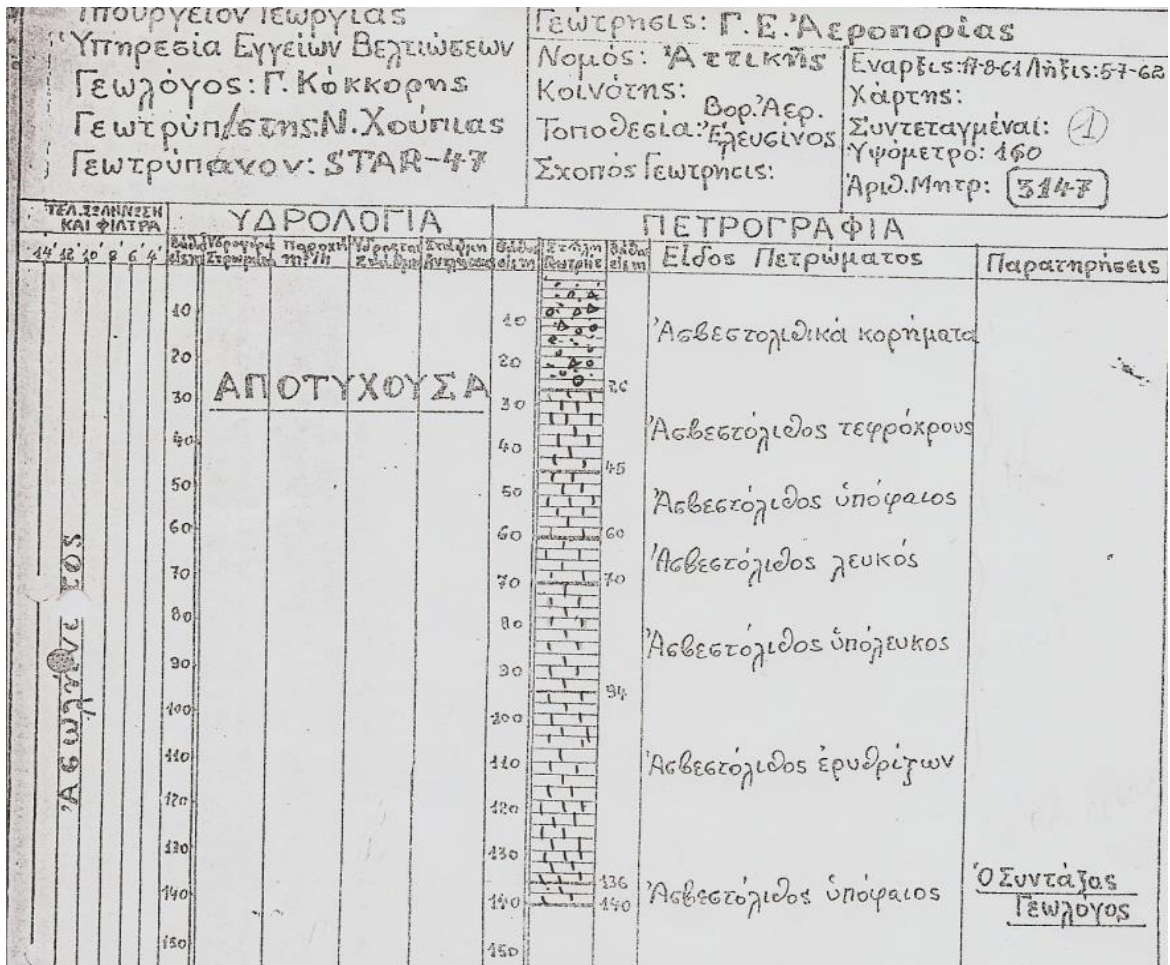 Ὑπουργεῖον Γεωργίας
Ὑπηρεσία Εγγείων Βελτιώσεων
Γεωλόγος: Γ. Κόκκορης
Γεωτρύπ/στης: Ν. Χούπιας
Γεωτρύπανον: STAR-47
Γεώτρησις: Γ.Ε. Ἀεροπορίας
Νομός: Ἀττικῆς
Κοινότης:
Τοποθεσία: Βορ. Ἀερ. Ἐλευσίνος
Σκοπός Γεωτρήσεις:
Εναρξις: 17-8-61 Λῆξις: 5-7-62
Χάρτης:
Συντεταγμέναι: 1
Ὑψόμετρο: 160
Ἀριθ. Μητρ: 3147
ΤΕΛ. ΣΩΛΗΝΩΣΗ ΚΑΙ ΦΙΛΤΡΑ
ΥΔΡΟΛΟΓΙΑ
ΠΕΤΡΟΓΡΑΦΙΑ
14' 12' 10' 8' 6' 4'
Παροχή
Είδος Πετρώματος
Παρατηρήσεις
10
20
30
40
50
60
70
80
90
100
110
120
130
140
150
Ἀσωλήνωτος
ΑΠΟΤΥΧΟΥΣΑ
10
20
30
40
50
60
70
80
90
100
110
120
130
140
150
26
45
60
70
94
136
140
Ἀσβεστολιθικά κορήματα
Ἀσβεστόλιθος τεφρόχρους
Ἀσβεστόλιθος ὑπόφαιος
Ἀσβεστόλιθος λευκός
Ἀσβεστόλιθος ὑπόλευκος
Ἀσβεστόλιθος ἐρυθρίζων
Ἀσβεστόλιθος ὑπόφαιος
Ὁ Συντάξας
Γεωλόγος